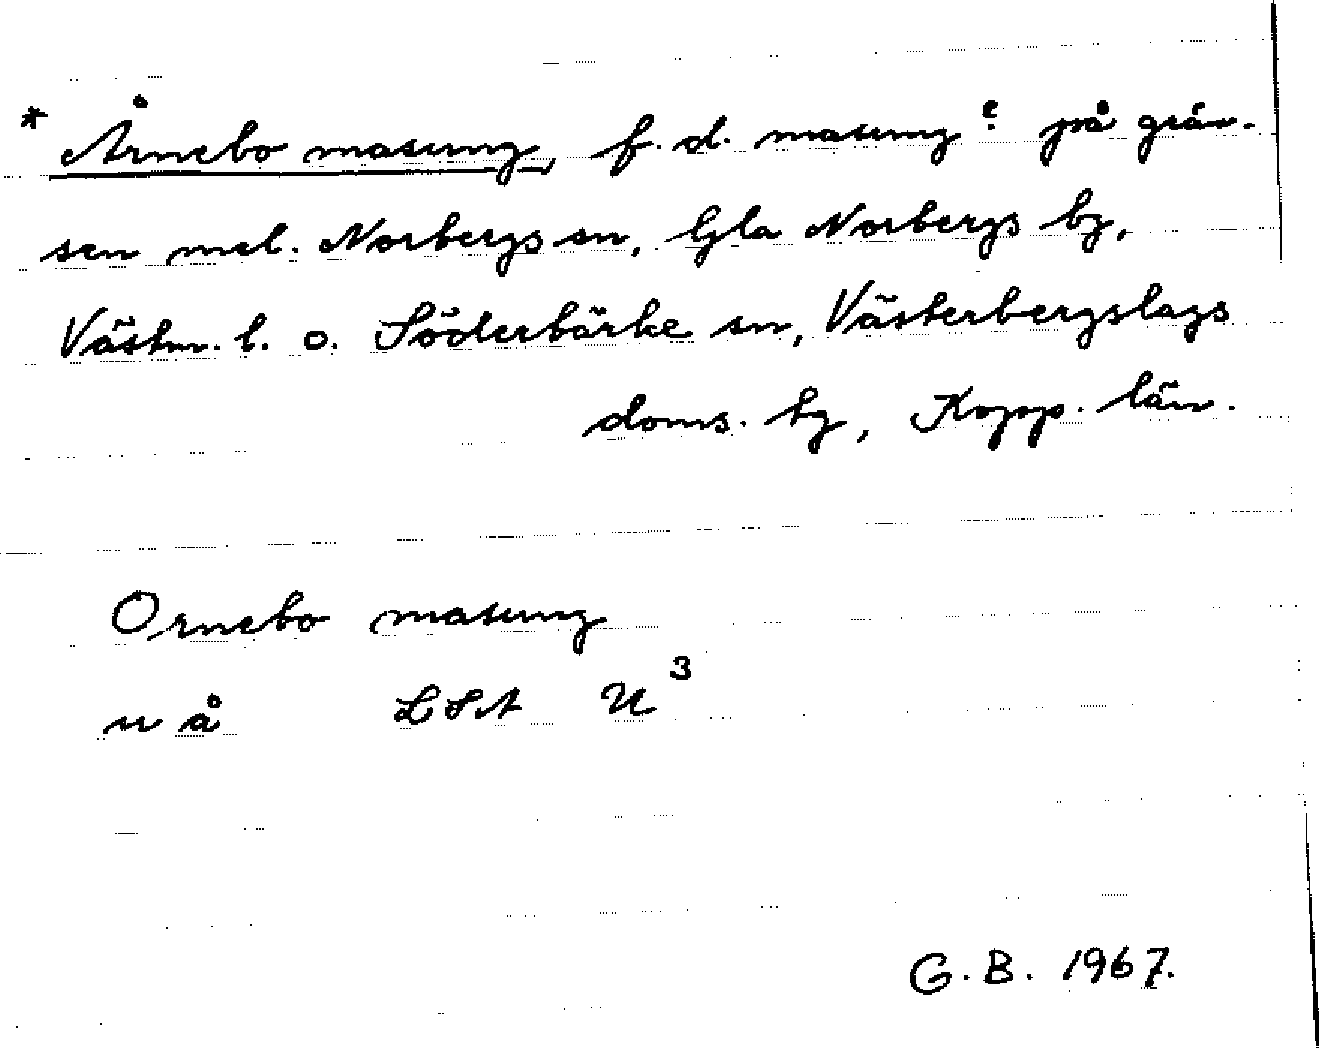 * Årnebo masugn, f.d. masugn? på grän-
sen mel. Norbergs sn, Gla Norbergs bg,
Västm. l. o. Söderbärke sn, Västerbergslags
doms. bg, Kopp. län.
Ornebo masugn
u å LSA U³
G.B. 1967.